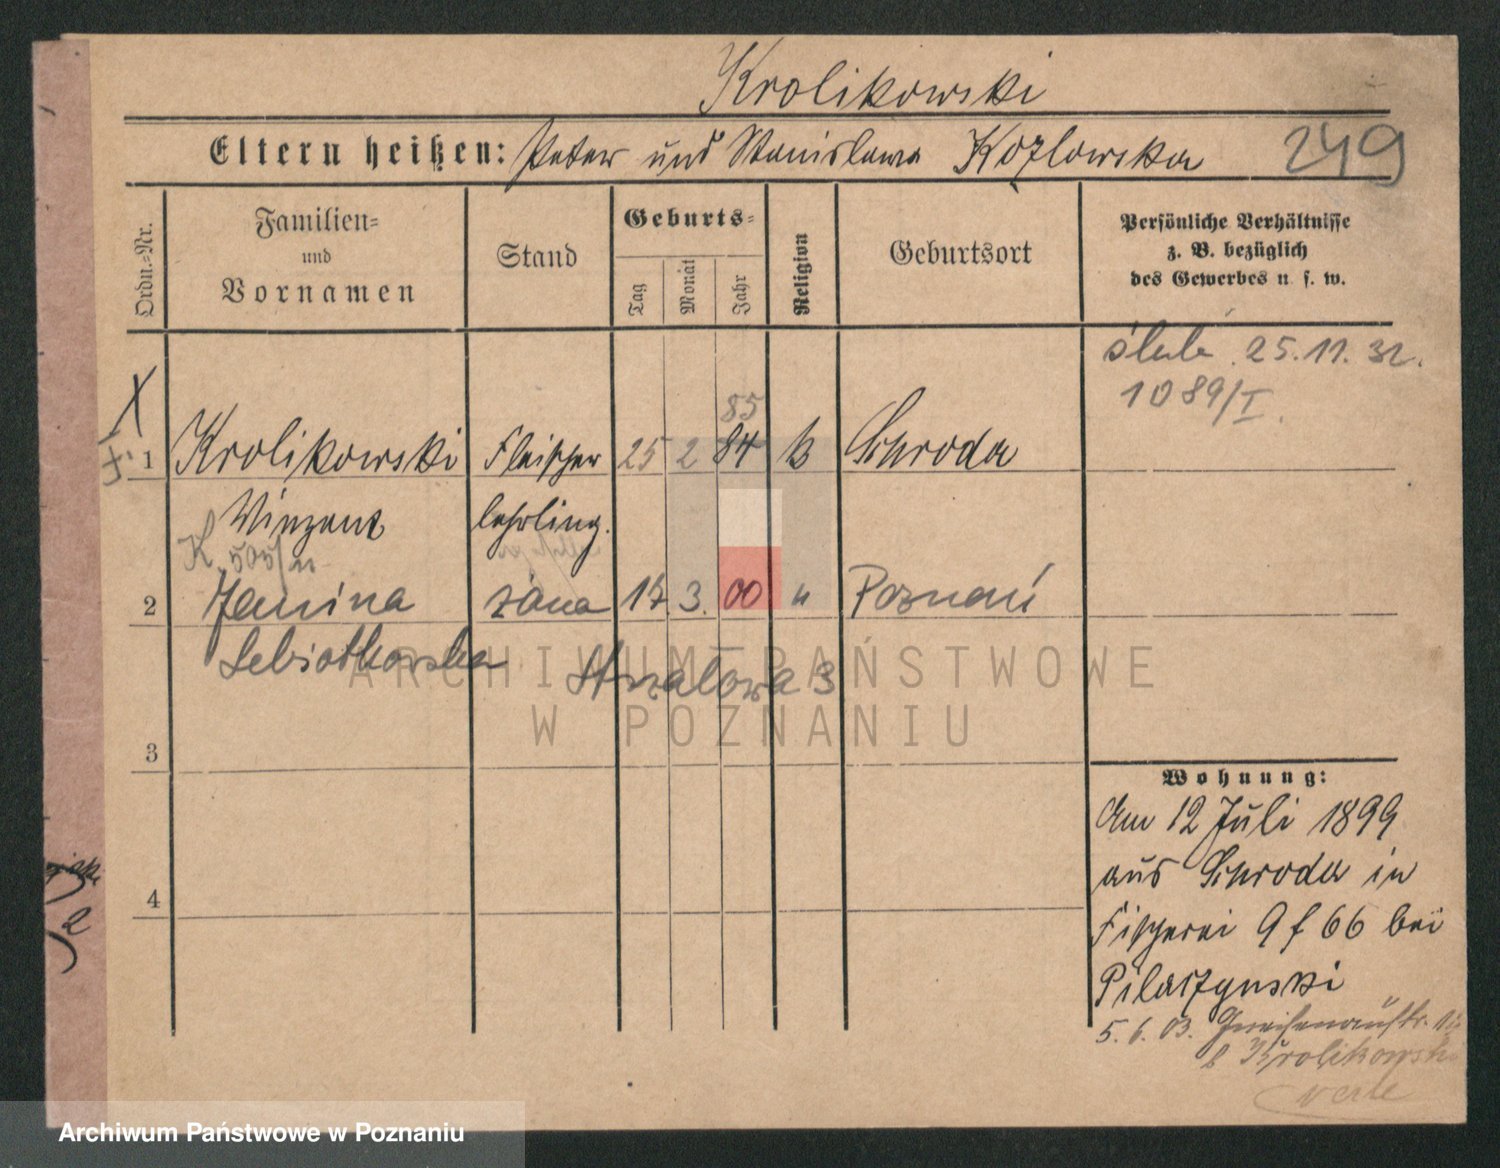 Krolikowski
Eltern heißen: Peter und Stanislawa Kozlowska
249
Ordn.-Nr.
Familien- und Vornamen
Stand
Geburts-
Tag
Monat
Jahr
Religion
Geburtsort
Persönliche Verhältnisse
z. B. bezüglich
des Gewerbes u. s. w.
25.11.32.
1089/I.
85
1 Krolikowski Fleischer 25 2 84 k Schroda
Vinzent lehrling.
K. 505/
2 Janina żona 17 3. 00 " Poznań
Lebiotkowska
Strzałowa 3
3
4
Wohnung:
Am 12 Juli 1899
aus Schroda in
Fischerei 9 f 66 bei
Pilaszynski
5.6.03. Gneisenaustr.
b Krolikowski
2
ARCHIWUM PAŃSTWOWE
W POZNANIU
Archiwum Państwowe w Poznaniu